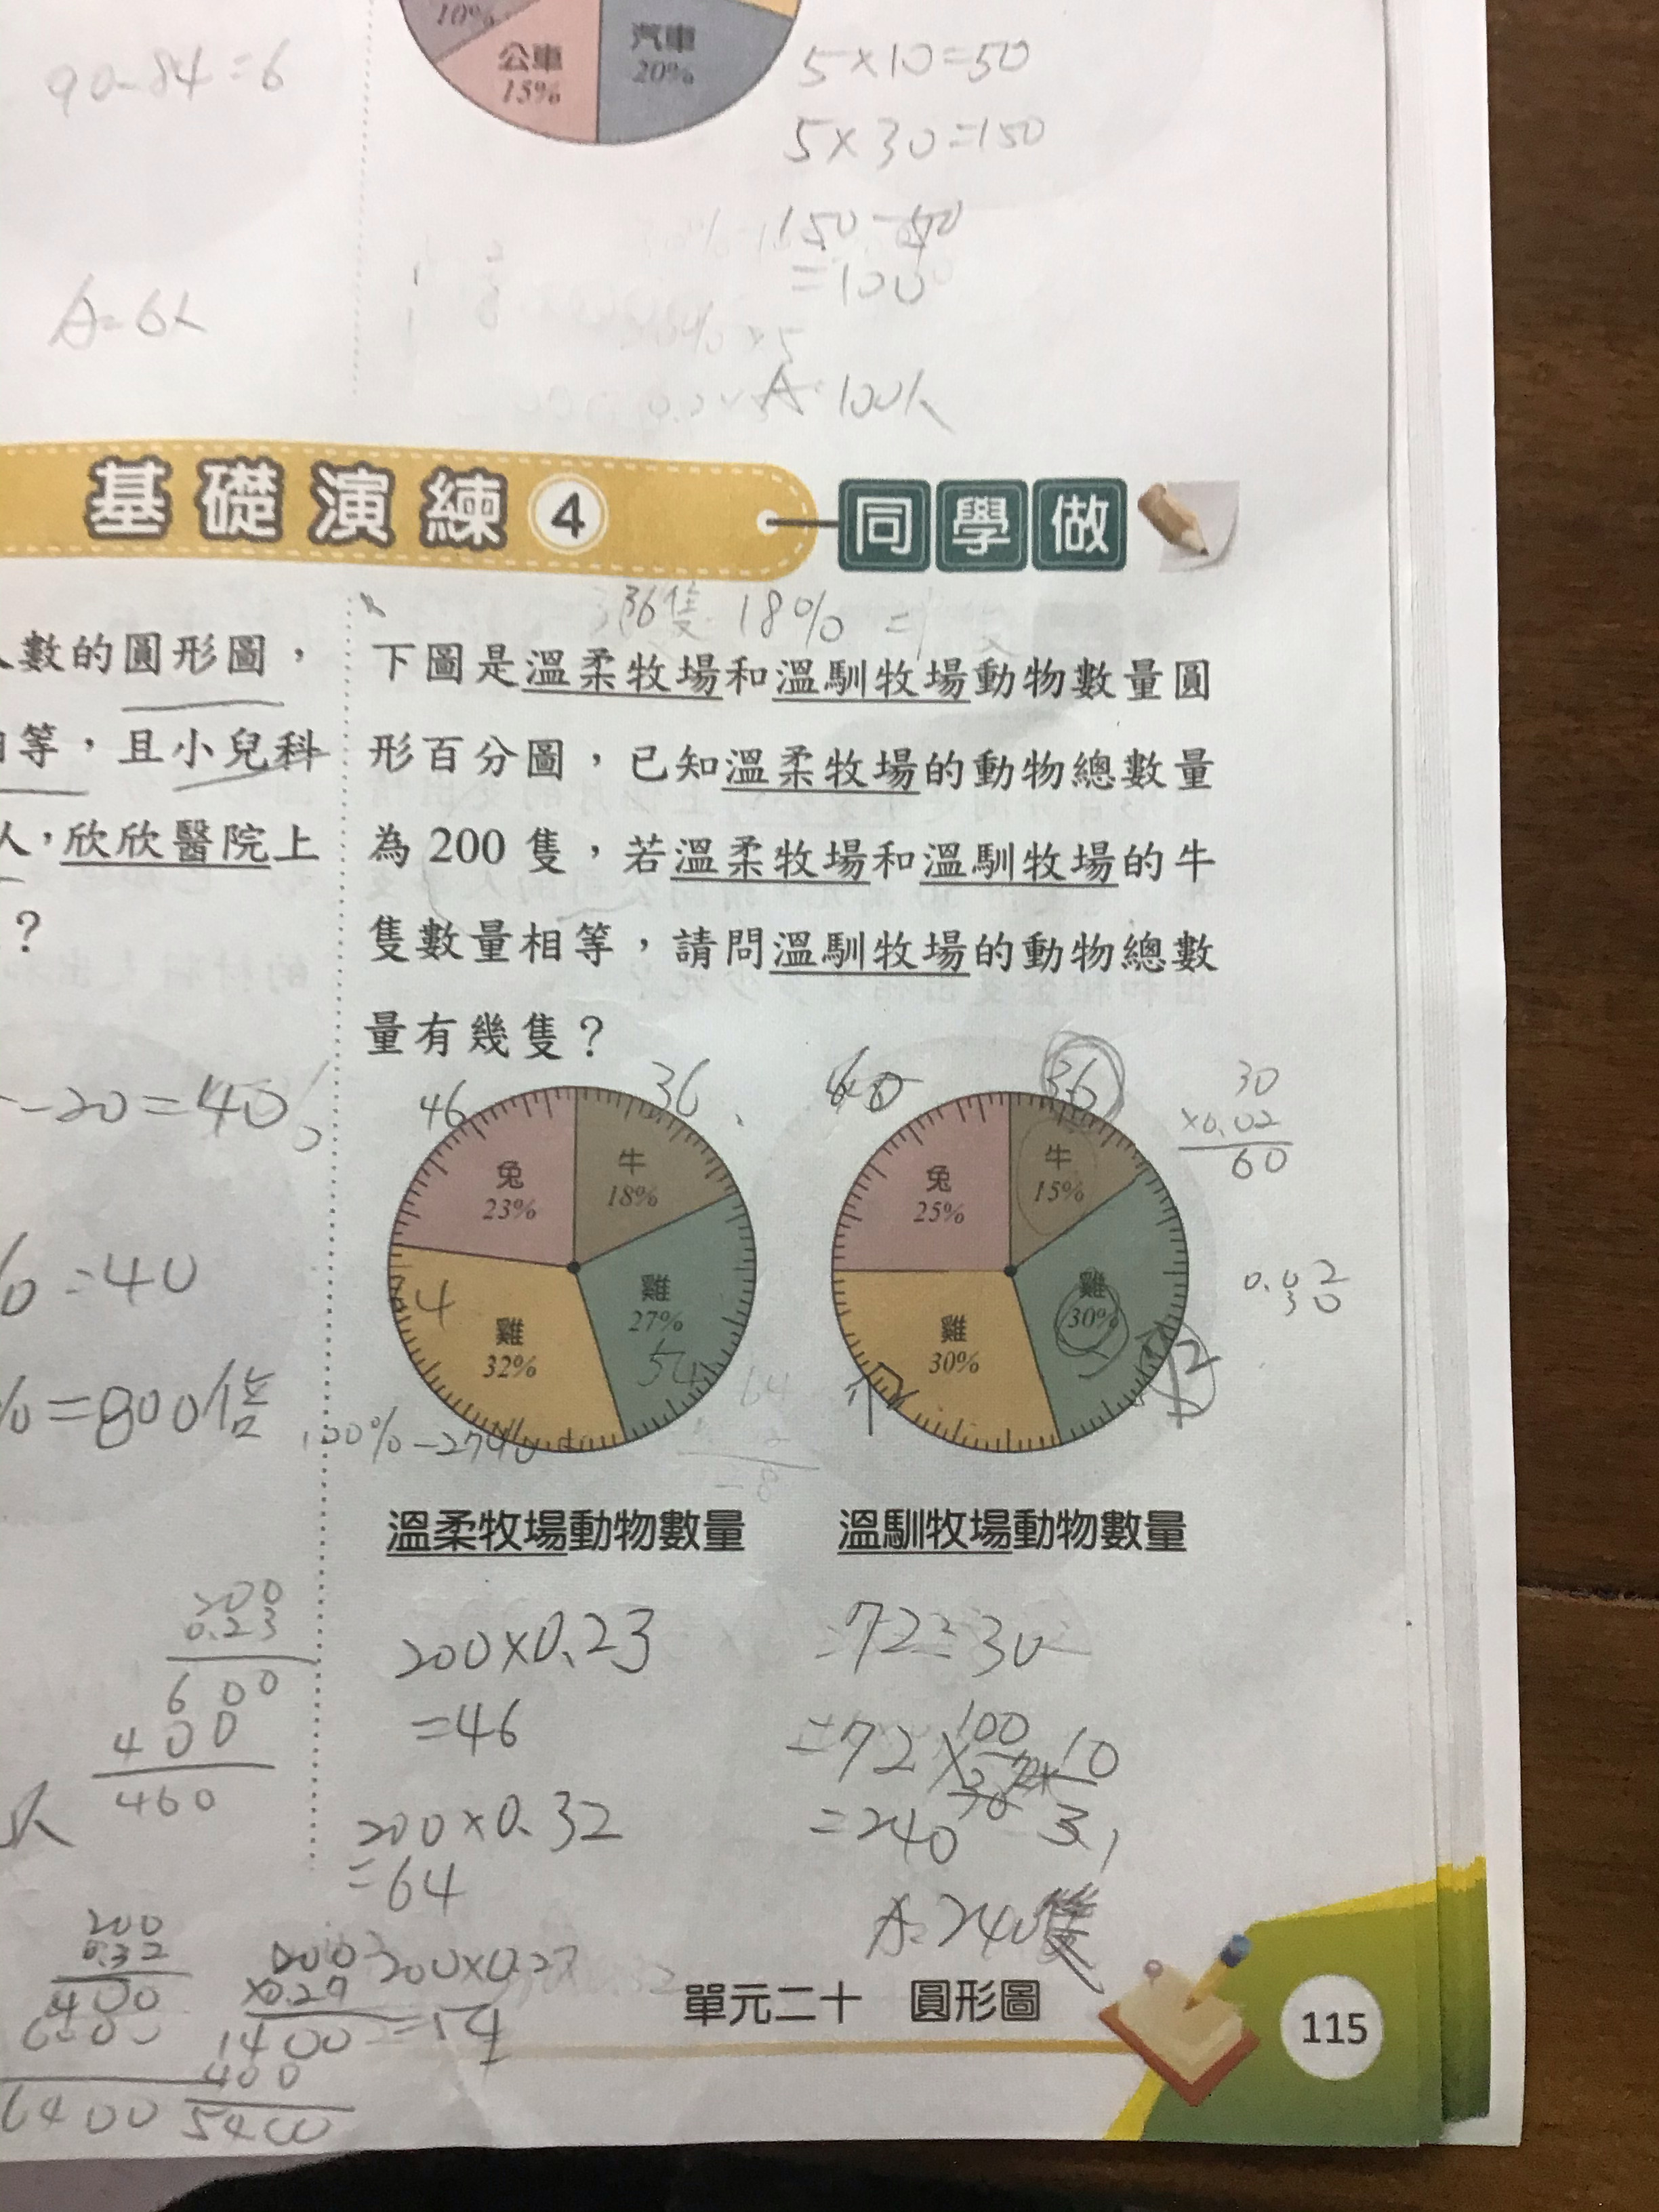 10%
公車
15%
汽車
20%
90-84=6
5×10=50
5×30=150
150-50
=100
A=6人
A:100人
基礎演練4
同學做
36隻 18% =
人數的圓形圖，
相等，且小兒科
人，欣欣醫院上
？
下圖是溫柔牧場和溫馴牧場動物數量圓
形百分圖，已知溫柔牧場的動物總數量
為200隻，若溫柔牧場和溫馴牧場的牛
隻數量相等，請問溫馴牧場的動物總數
量有幾隻？
-20=40
%=40
%=800倍
46
36
兔
23%
牛
18%
雞
27%
54
雞
32%
100%-27%
溫柔牧場動物數量
60
36
兔
25%
牛
15%
雞
30%
雞
30%
溫馴牧場動物數量
30
×0.02
60
0.02
30
200
0.23
600
400
460
200×0.23
=46
200×0.32
=64
=72÷30
=72×100
10
3
=240
A:240隻
200
0.32
400
6400
200×0.27
=54
1400
400
5400
單元二十 圓形圖
115